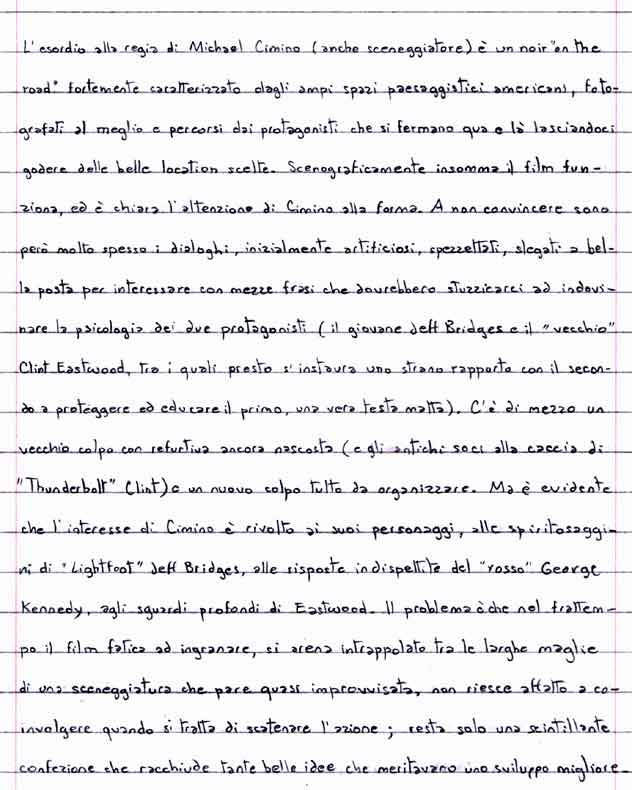 L'esordio alla regia di Michael Cimino (anche sceneggiatore) è un noir "on the
road" fortemente caratterizzato dagli ampi spazi paesaggistici americani, foto-
grafati al meglio e percorsi dai protagonisti che si fermano qua e là lasciandoci
godere delle belle location scelte. Scenograficamente insomma il film fun-
ziona, ed è chiara l'attenzione di Cimino alla forma. A non convincere sono
però molto spesso i dialoghi, inizialmente artificiosi, spezzettati, slegati a bel-
la posta per interessare con mezze frasi che dovrebbero stuzzicarci ad indovi-
nare la psicologia dei due protagonisti (il giovane Jeff Bridges e il "vecchio"
Clint Eastwood, tra i quali presto s'instaura uno strano rapporto con il secon-
do a proteggere ed educare il primo, una vera testa matta). C'è di mezzo un
vecchio colpo con refurtiva ancora nascosta (e gli antichi soci alla caccia di
"Thunderbolt" Clint) e un nuovo colpo tutto da organizzare. Ma è evidente
che l'interesse di Cimino è rivolto ai suoi personaggi, alle spiritosaggi-
ni di "Lightfoot" Jeff Bridges, alle risposte indispettite del "rosso" George
Kennedy, agli sguardi profondi di Eastwood. Il problema è che nel frattem-
po il film fatica ad ingranare, si arena intrappolato tra le larghe maglie
di una sceneggiatura che pare quasi improvvisata, non riesce affatto a co-
involgere quando si tratta di scatenare l'azione; resta solo una scintillante
confezione che racchiude tante belle idee che meritavano uno sviluppo migliore.